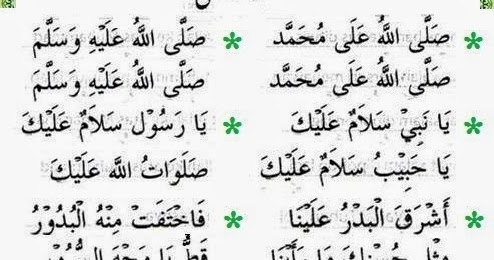 صَلَّى اللّٰهُ عَلَى مُحَمَّد * صَلَّى اللّٰهُ عَلَيْهِ وَسَلَّمَ
صَلَّى اللّٰهُ عَلَى مُحَمَّد صَلَّى اللّٰهُ عَلَيْهِ وَسَلَّمَ
يَا نَبِيْ سَلَامٌ عَلَيْكَ * يَا رَسُوْل سَلَامٌ عَلَيْكَ
يَا حَبِيْبُ سَلَامٌ عَلَيْكَ صَلَوَاتُ اللّٰه عَلَيْكَ
أَشْرَقَ الْبَدْرُ عَلَيْنَا * فَاخْتَفَتْ مِنْهُ الْبُدُوْرُ
مِثْلَ حُسْنِكَ مَا رَأَيْنَا قَطُّ يَا وَجْهَ السُّرُوْرِ